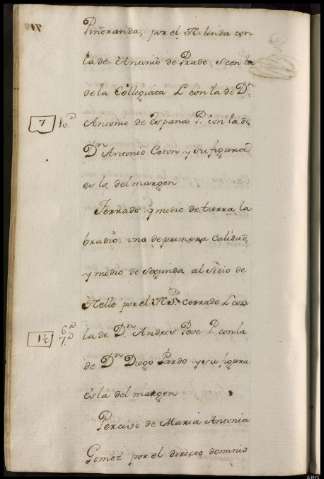 Piñeranda, por el N. linda con
la de Antonio de Prado, S. con la
de la Collegiata L. con la de Dn
7 10ª Antonio de España P. con la de
Dn Antonio Coton y su figura
es la del margen
Ferrado y medio de tierra la
bradio uno de primera calidad
y medio de segunda al Sitio de
por el N. cerrado L. con
1½ 6ª 7ª la de Dn Andres P. con la
de Dn Diego Pardo y su figura
es la del margen
Percive de Maria Antonia
Gomez por el directo dominio